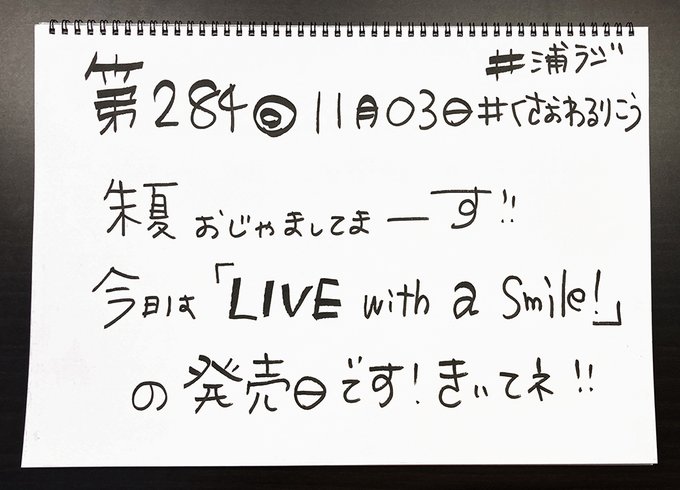 #浦ラジ
第284回 11月03日 #くさおわるりこう
朱夏 おじゃましてまーす!!
今日は「LIVE with a Smile!」
の発売日です!きいてネ!!